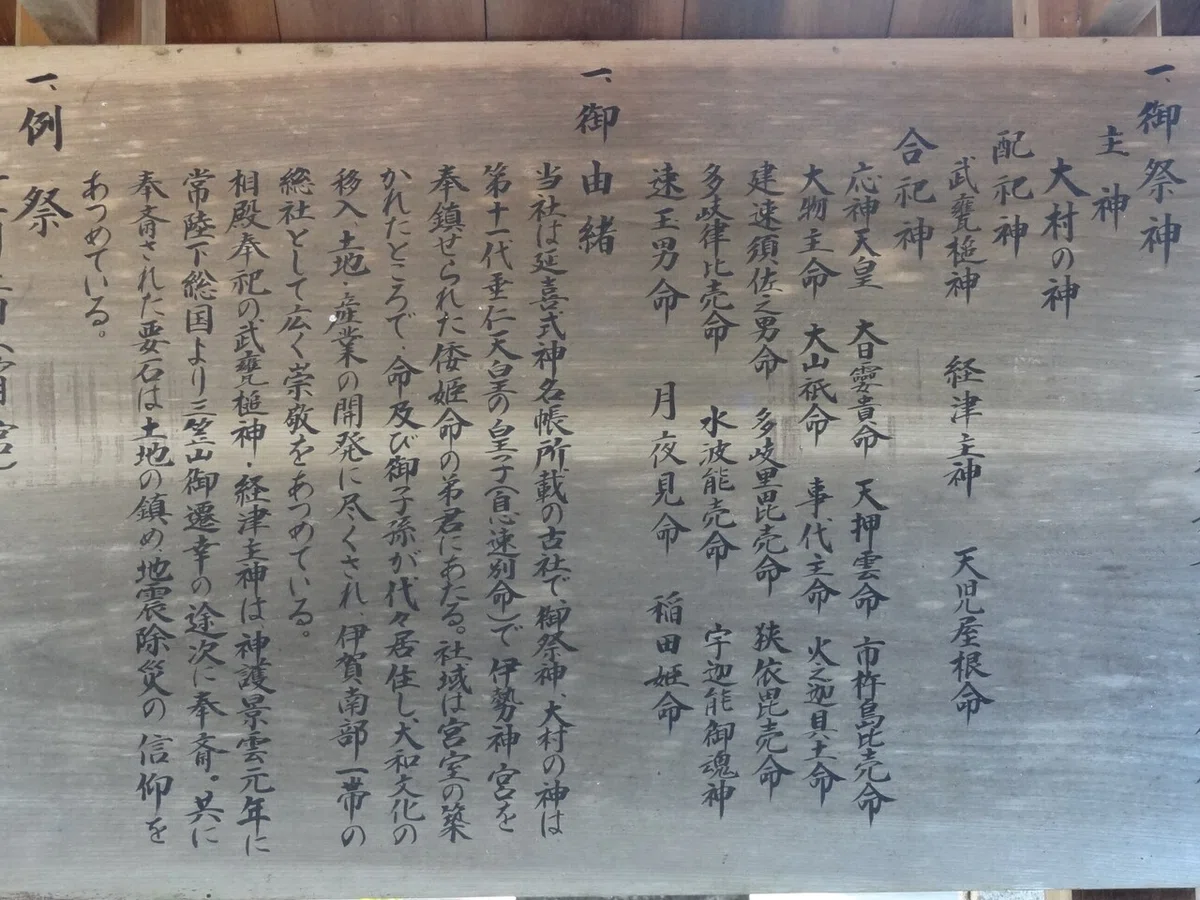 一、御祭神
主神
大村の神
配祀神
武甕槌神 経津主神 天児屋根命
合祀神
応神天皇 大日孁貴命 天押雲命 市杵島比売命
大物主命 大山祇命 事代主命 火之迦具土命
建速須佐之男命 多岐里毘売命 狭依毘売命
多岐律比売命 水波能売命 宇迦能御魂神
速玉男命 月夜見命 稲田姫命
一、御由緒
当社は延喜式神名帳所載の古社で、御祭神、大村の神は
第十一代垂仁天皇の皇子(息速別命)で伊勢神宮を
奉鎮せられた倭姫命の弟君にあたる。社域は宮室の築
かれたところで、命及び御子孫が代々居住し、大和文化の
移入、土地・産業の開発に尽くされ伊賀南部一帯の
総社として広く崇敬をあつめている。
相殿奉祀の武甕槌神・経津主神は神護景雲元年に
常陸下総国より三笠山御遷幸の途次に奉斎。共に
奉斎された要石は土地の鎮め、地震除災の信仰を
あつめている。
一、例祭